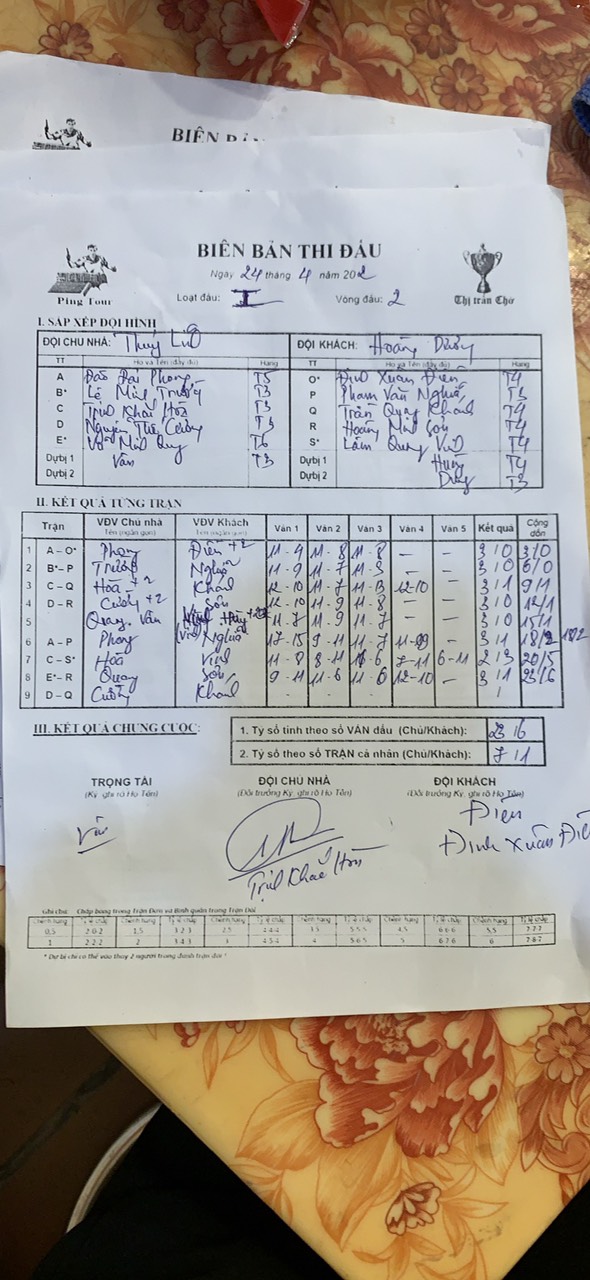 BIÊN BẢN
BIÊN BẢN THI ĐẤU
Ngày 24 tháng 4 năm 202
Ping Tour
Loạt đấu: I
Vòng đấu: 2
Thị trấn Chờ
I. SẮP XẾP ĐỘI HÌNH
ĐỘI CHỦ NHÀ: Thùy Linh ĐỘI KHÁCH: Hoàng
TT Họ và Tên (đầy đủ) Hạng TT Họ và Tên (đầy đủ) Hạng
A Đào Đại Phong T5 O* Đinh Xuân Điền T4
B* Lê Minh T3 P Phạm Văn Nghĩa T3
C Khắc Hòa T3 Q Trần Quang Khanh T4
D Nguyễn Thế Cường T3 R Hoàng Sơn T4
E* Quy T6 S* Lâm Quang T4
Dự bị 1 Vân T3 Dự bị 1 T4
Dự bị 2 Dự bị 2 T3
II. KẾT QUẢ TỪNG TRẬN
Trận VĐV Chủ nhà Tên (ngắn gọn) VĐV Khách Tên (ngắn gọn) Ván 1 Ván 2 Ván 3 Ván 4 Ván 5 Kết quả Cộng dồn
1 A – O* Phong Điền +2 11-9 11-8 11-8 – – 3/0 3/0
2 B* – P Nghĩa 11-9 11-7 – – 3/0 6/0
3 C – Q Hoà +2 Khanh 12-10 11-7 12-10 – 3/1 9/1
4 D – R Cường +2 Sơn 12-10 11-9 11-8 – – 3/0 12/1
5 Quang. Vân 11-7 11-9 11-7 – – 3/0 15/1
6 A – P Phong Nghĩa 17-15 9-11 11-7 – 3/1 18/2
7 C – S* Hoà 11-8 8-11 7-11 6-11 2/3 20/5
8 E* – R Quang Sơn 9-11 11-6 11-6 12-10 – 3/1 23/6
9 D – Q Cường Khanh /
III. KẾT QUẢ CHUNG CUỘC:
1. Tỷ số tính theo số VÁN đấu (Chủ/Khách): 23 / 6
2. Tỷ số theo số TRẬN cá nhân (Chủ/Khách): 7 / 1
TRỌNG TÀI ĐỘI CHỦ NHÀ ĐỘI KHÁCH
(Ký, ghi rõ Họ Tên) (Đội trưởng Ký, ghi rõ Họ Tên) (Đội trưởng Ký, ghi rõ Họ Tên)
Điền
Đinh Xuân Điền
Khắc Hòa
Ghi chú: Chấp bóng trong Trận Đơn và Bình quân trong Trận Đôi
Chênh hạng Tỷ lệ chấp Chênh hạng Tỷ lệ chấp Chênh hạng Tỷ lệ chấp Chênh hạng Tỷ lệ chấp Chênh hạng Tỷ lệ chấp Chênh hạng Tỷ lệ chấp
0,5 2-0-2 1,5 3-2-3 2,5 4-4-4 3,5 5-5-5 4,5 6-6-6 5,5 7-7-7
1 2-2-2 2 3-4-3 3 4-5-4 4 5-6-5 5 6-7-6 6 7-8-7
* Dự bị chỉ có thể vào thay 2 người trong đánh trận đôi !